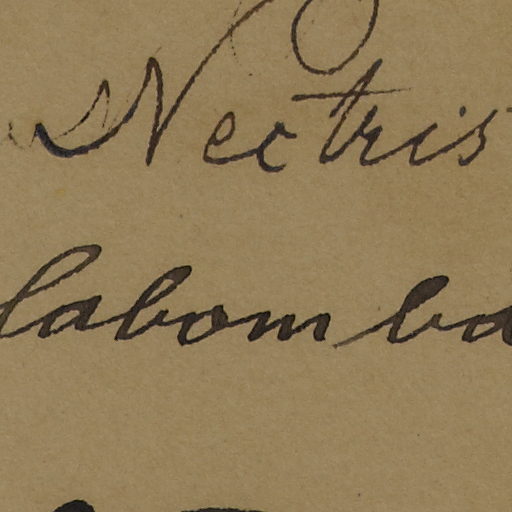 Nectris
labomba